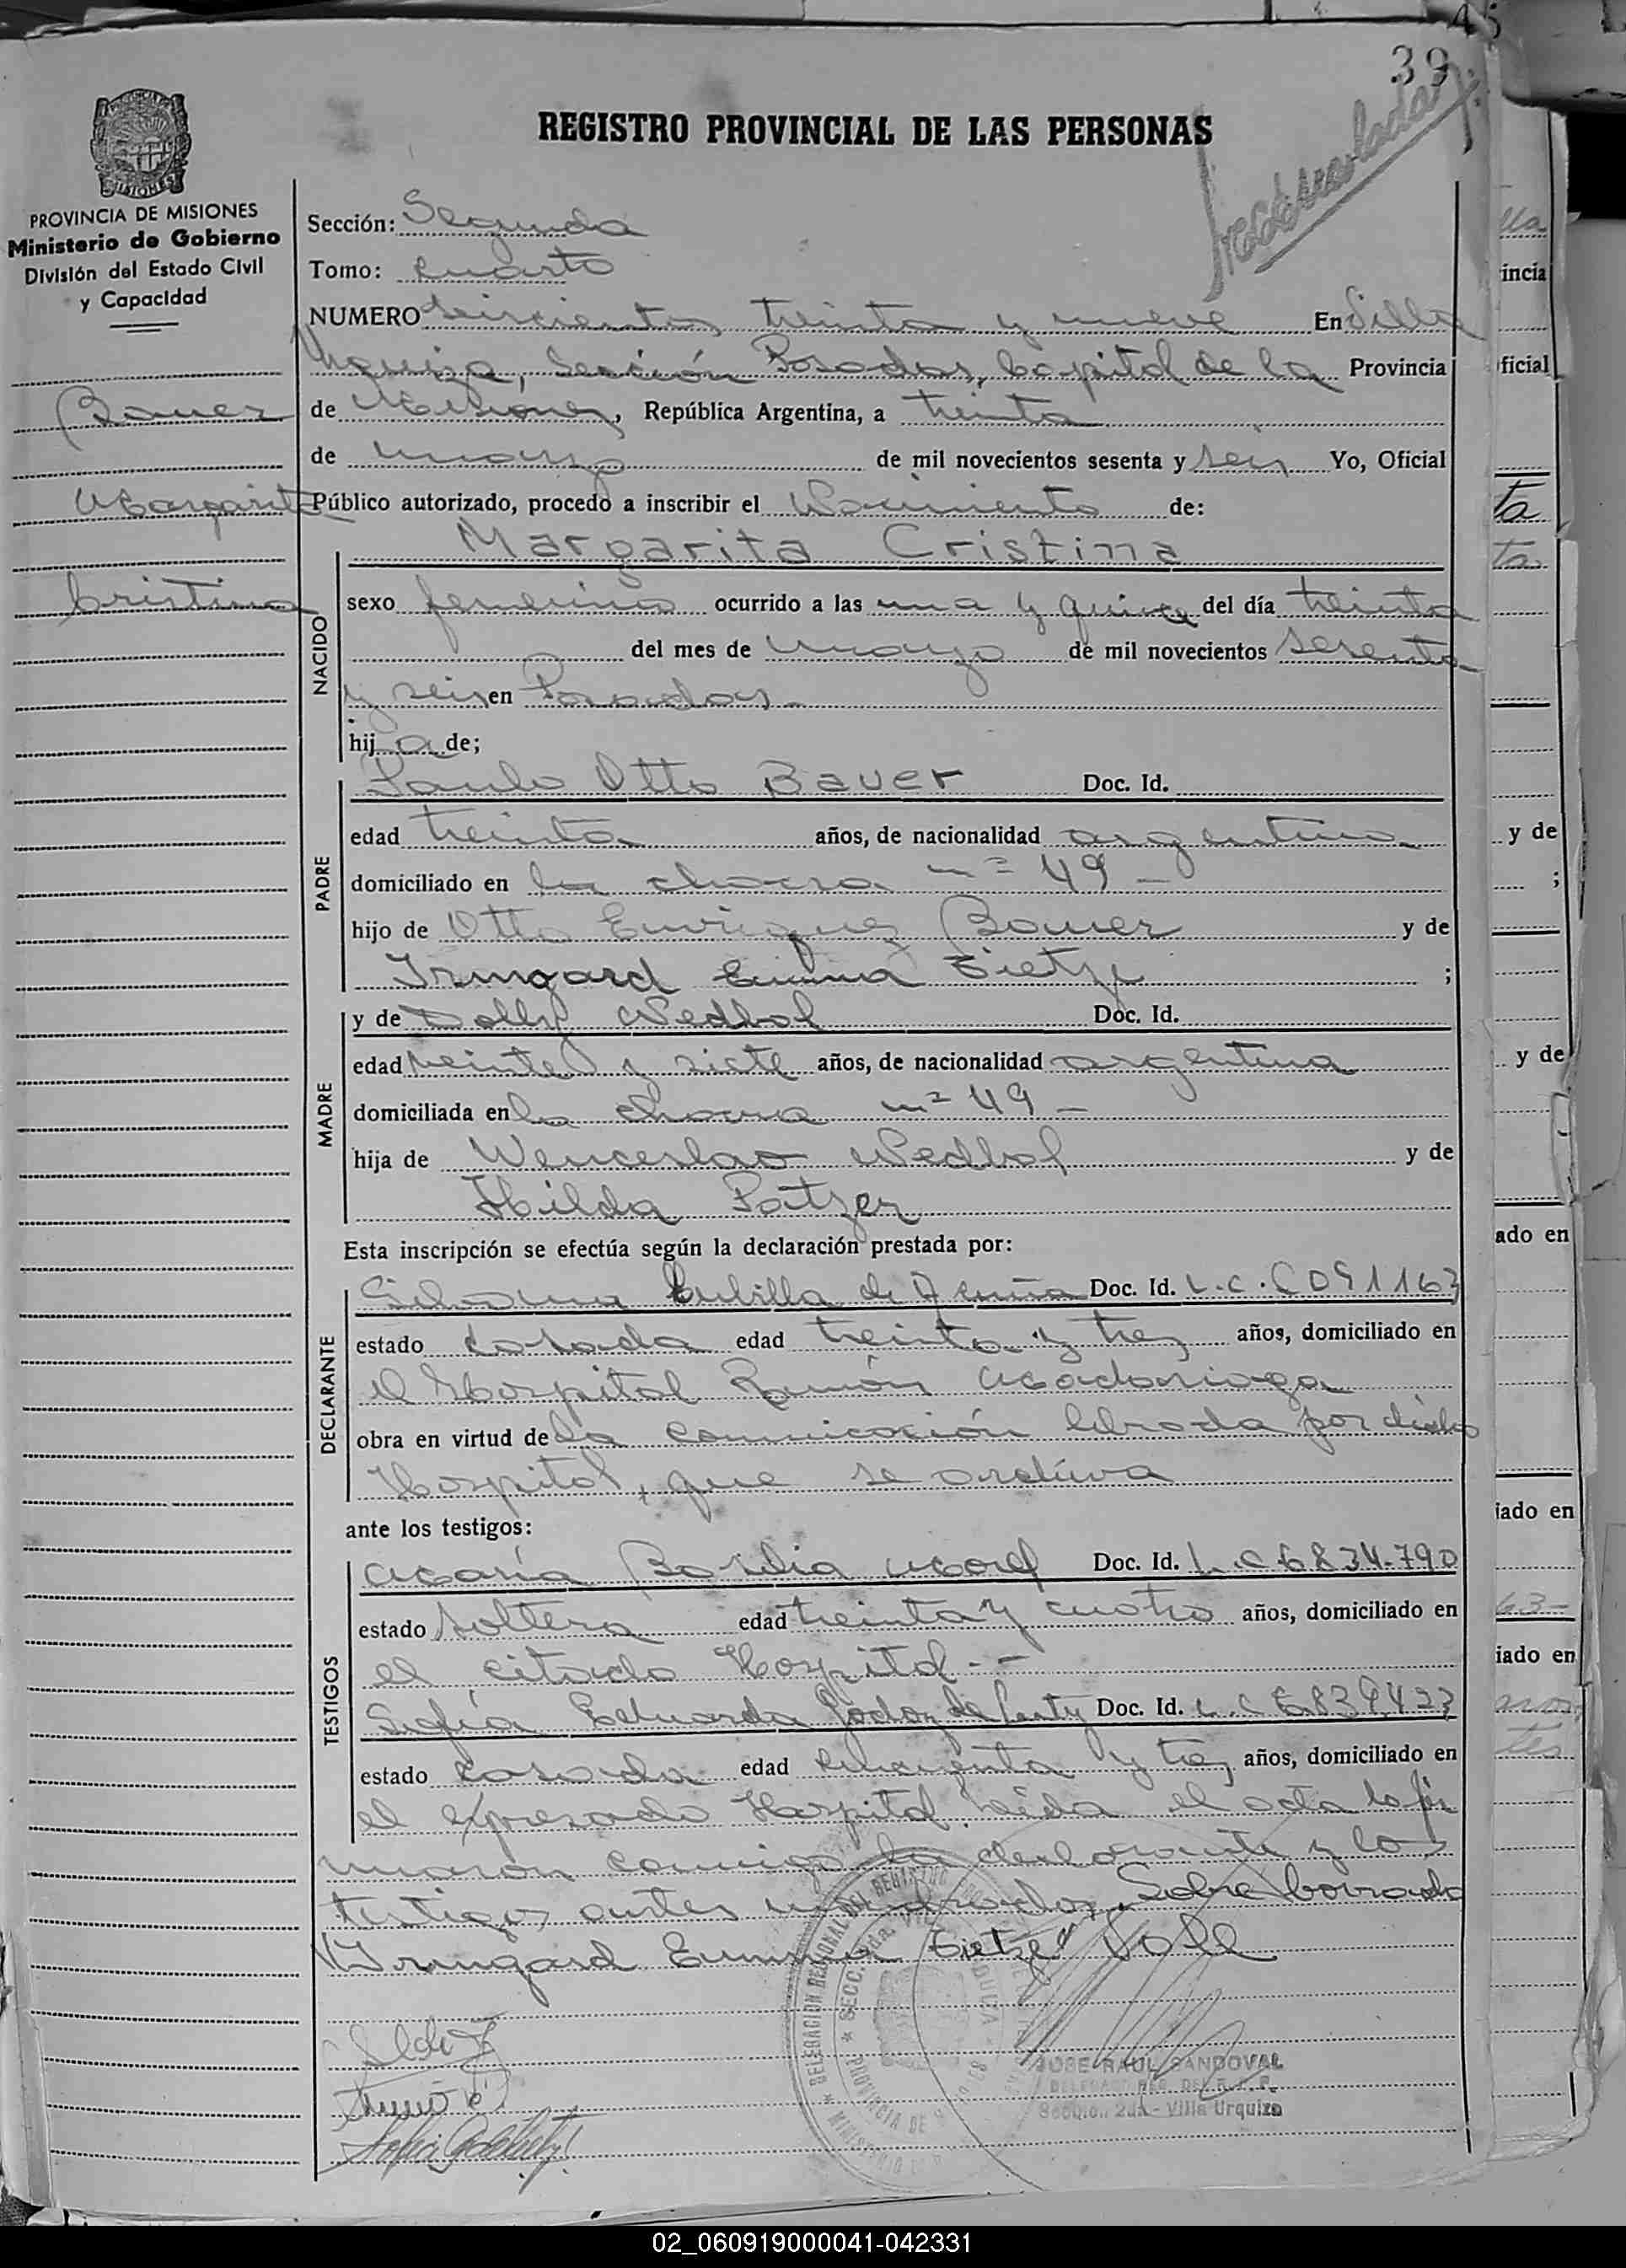 39
REGISTRO PROVINCIAL DE LAS PERSONAS
MISIONES
PROVINCIA DE MISIONES
Ministerio de Gobierno
División del Estado Civil
y Capacidad
Sección: Segunda
Tomo: Cuarto
NUMERO seiscientos treinta y nueve En Villa
Urquiza, Sección Posadas, Capital de la Provincia
de Misiones, República Argentina, a treinta
de mil novecientos sesenta y seis Yo, Oficial
Público autorizado, procedo a inscribir el Nacimiento de:
Bauer
Margarita
Cristina
NACIDO
Margarita Cristina
sexo femenino ocurrido a las una y quince del día treinta
del mes de de mil novecientos sesenta
y seis en Posadas
hija de;
PADRE
Paulo Otto Bauer Doc. Id.
edad treinta años, de nacionalidad argentina
domiciliado en la chacra nº 49
hijo de Otto Enrique Bauer y de
Irmgard Emma Tietze ;
MADRE
y de Dolly Doc. Id.
edad veinte y siete años, de nacionalidad argentina
domiciliada en la chacra nº 49
hija de Wenceslao y de
Hilda Patzer
Esta inscripción se efectúa según la declaración prestada por:
DECLARANTE
de Acuña Doc. Id. L.C.
estado casada edad treinta y tres años, domiciliado en
el Hospital Ramón Madariaga
obra en virtud de la comunicación librada por dicho
Hospital, que se archiva
ante los testigos:
TESTIGOS
María Doc. Id. L.C 6.834.790
estado soltera edad treinta y cuatro años, domiciliado en
el citado Hospital
Sofía Eduarda Doc. Id. L.C 6.839.423
estado casada edad cincuenta y tres años, domiciliado en
el expresado Hospital. Leída el acta la fir
maron conmigo la declarante y los
testigos antes nombrados. Sobre borrado
"Irmgard Emma Tietze" Vale
JOSE RAUL SANDOVAL
Sección 2da - Villa Urquiza
02_060919000041-042331